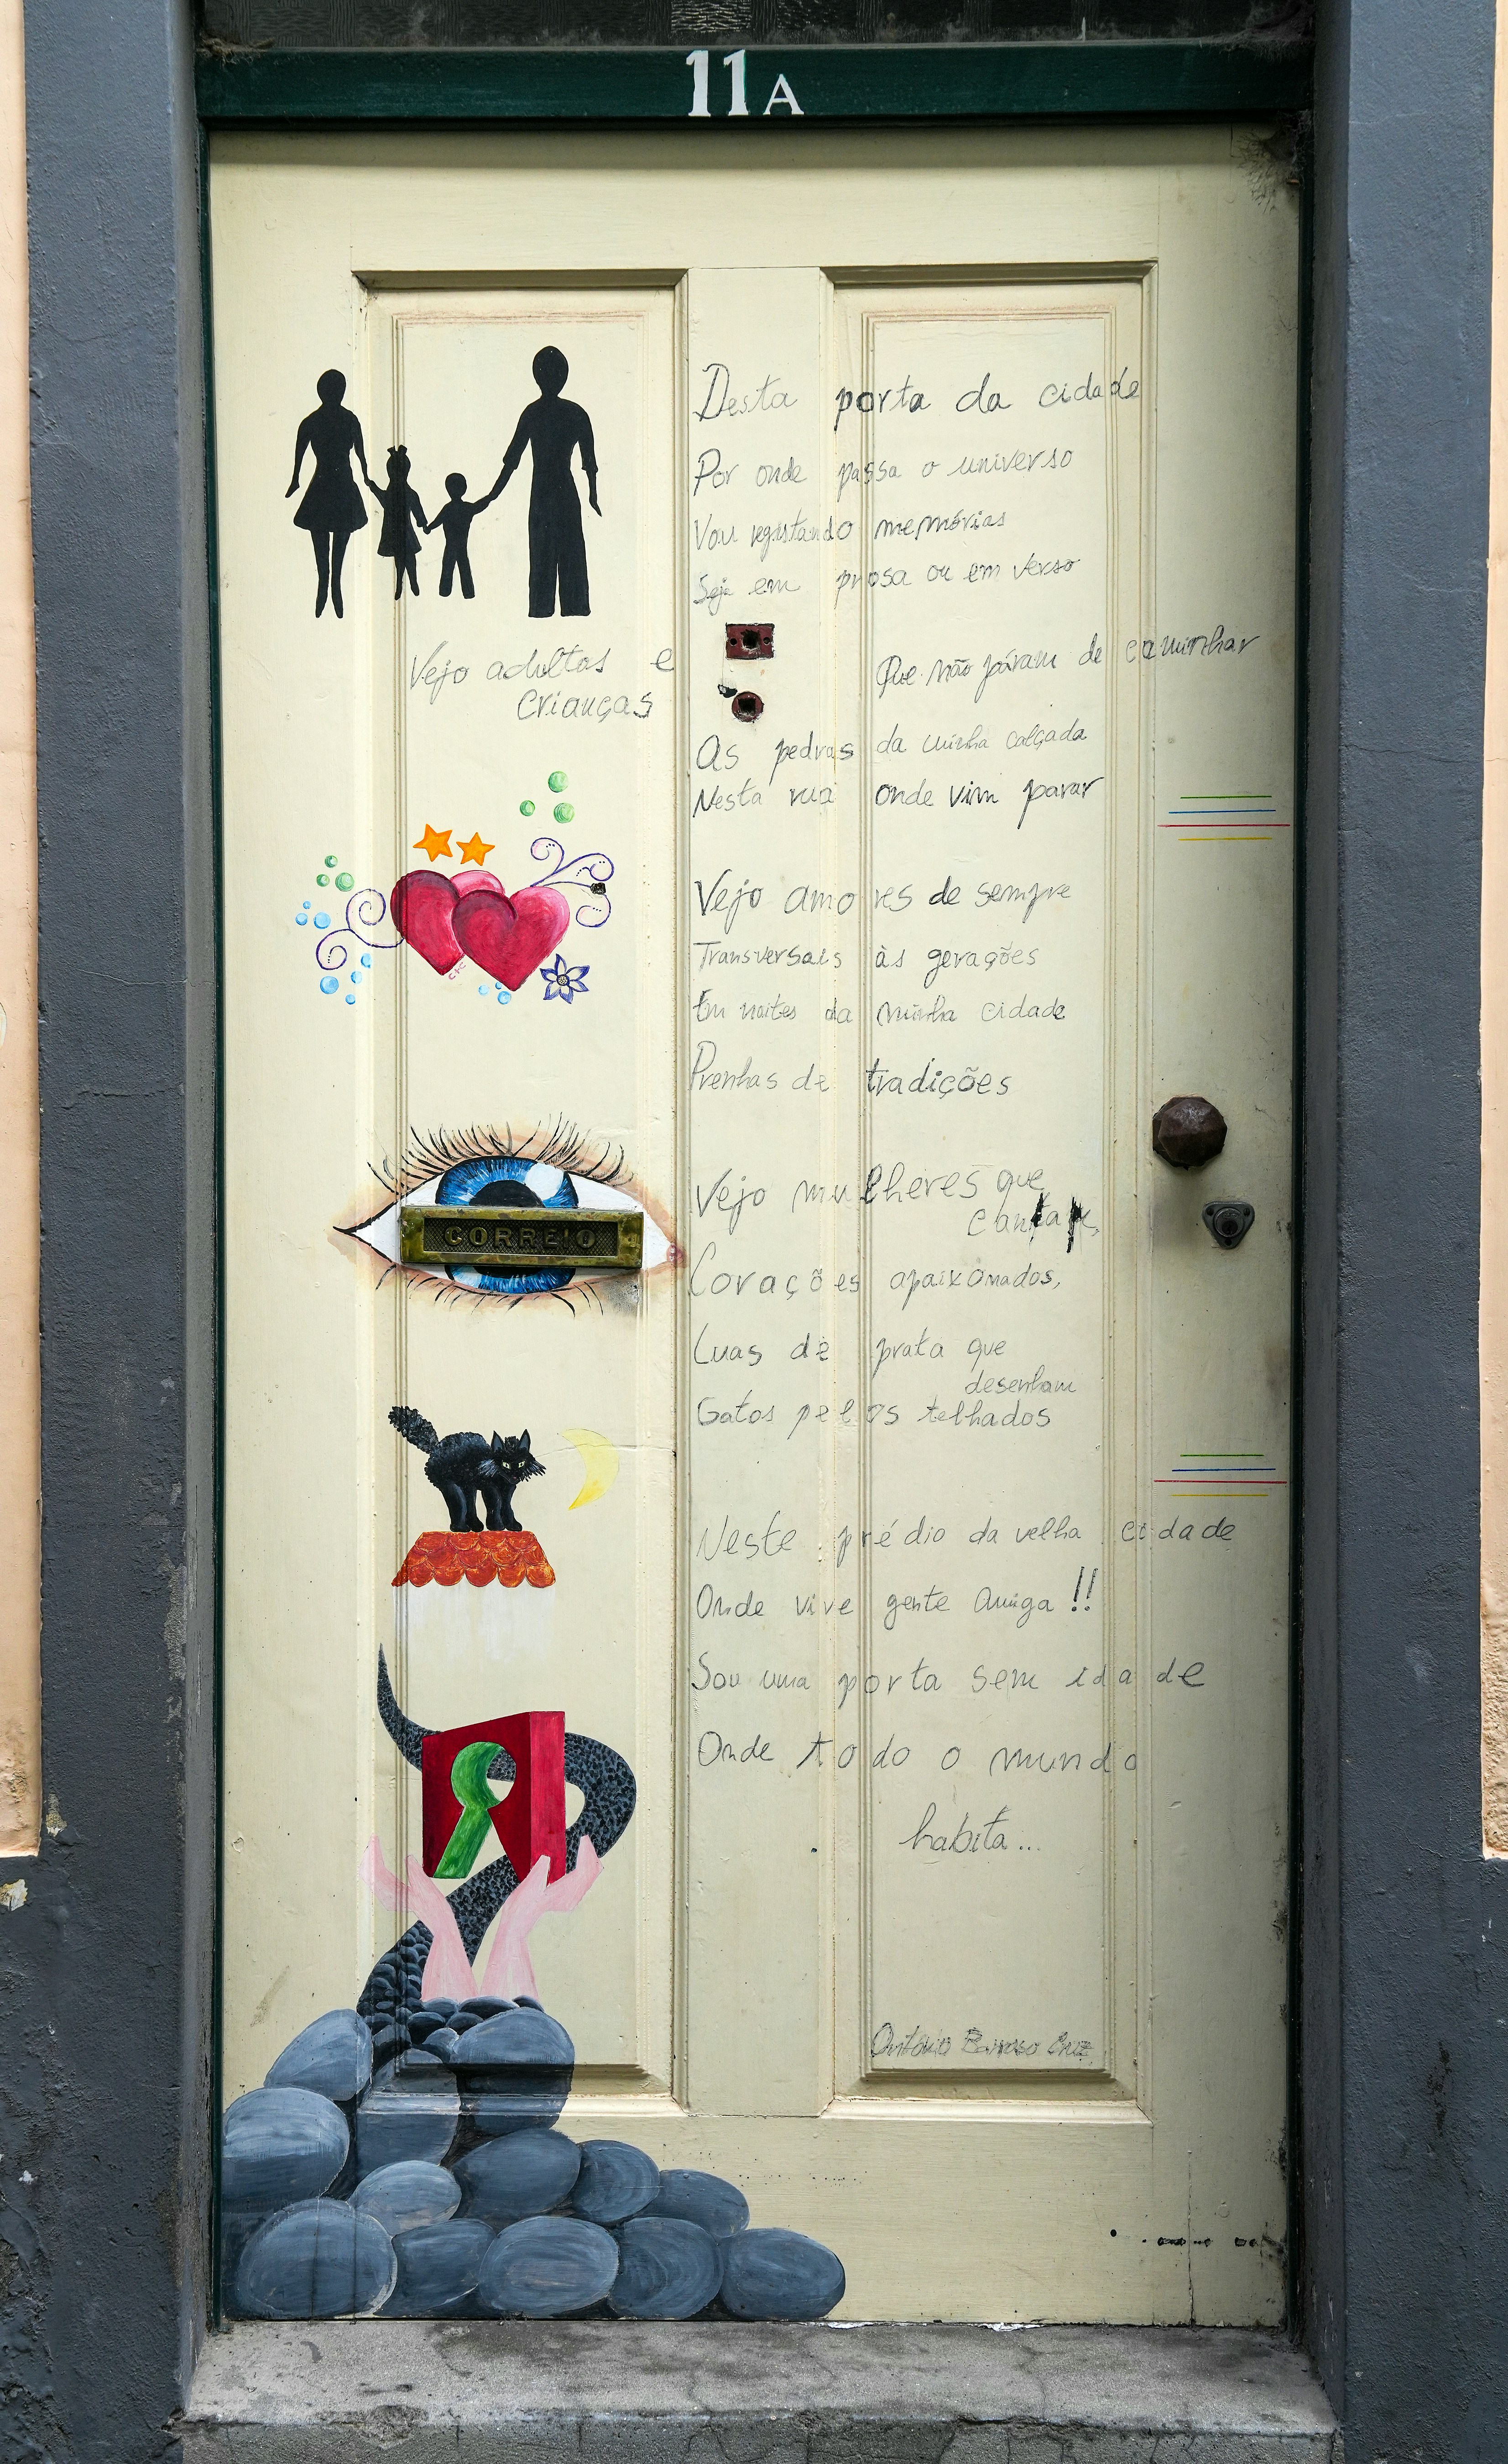 11A
Desta porta da cidade
Por onde passa o universo
Vou registando memórias
Seja em prosa ou em verso
Vejo adultos e
crianças
Que não páram de caminhar
As pedras da minha calçada
Nesta rua onde vim parar
Vejo amores de sempre
Transversais às gerações
Em noites da minha cidade
Prenhas de tradições
Vejo mulheres que
cantam,
Corações apaixonados,
Luas de prata que
desenham
Gatos pelos telhados
CORREIO
Neste prédio da velha cidade
Onde vive gente amiga!!
Sou uma porta sem idade
Onde todo o mundo
habita...
António Barroso Cruz